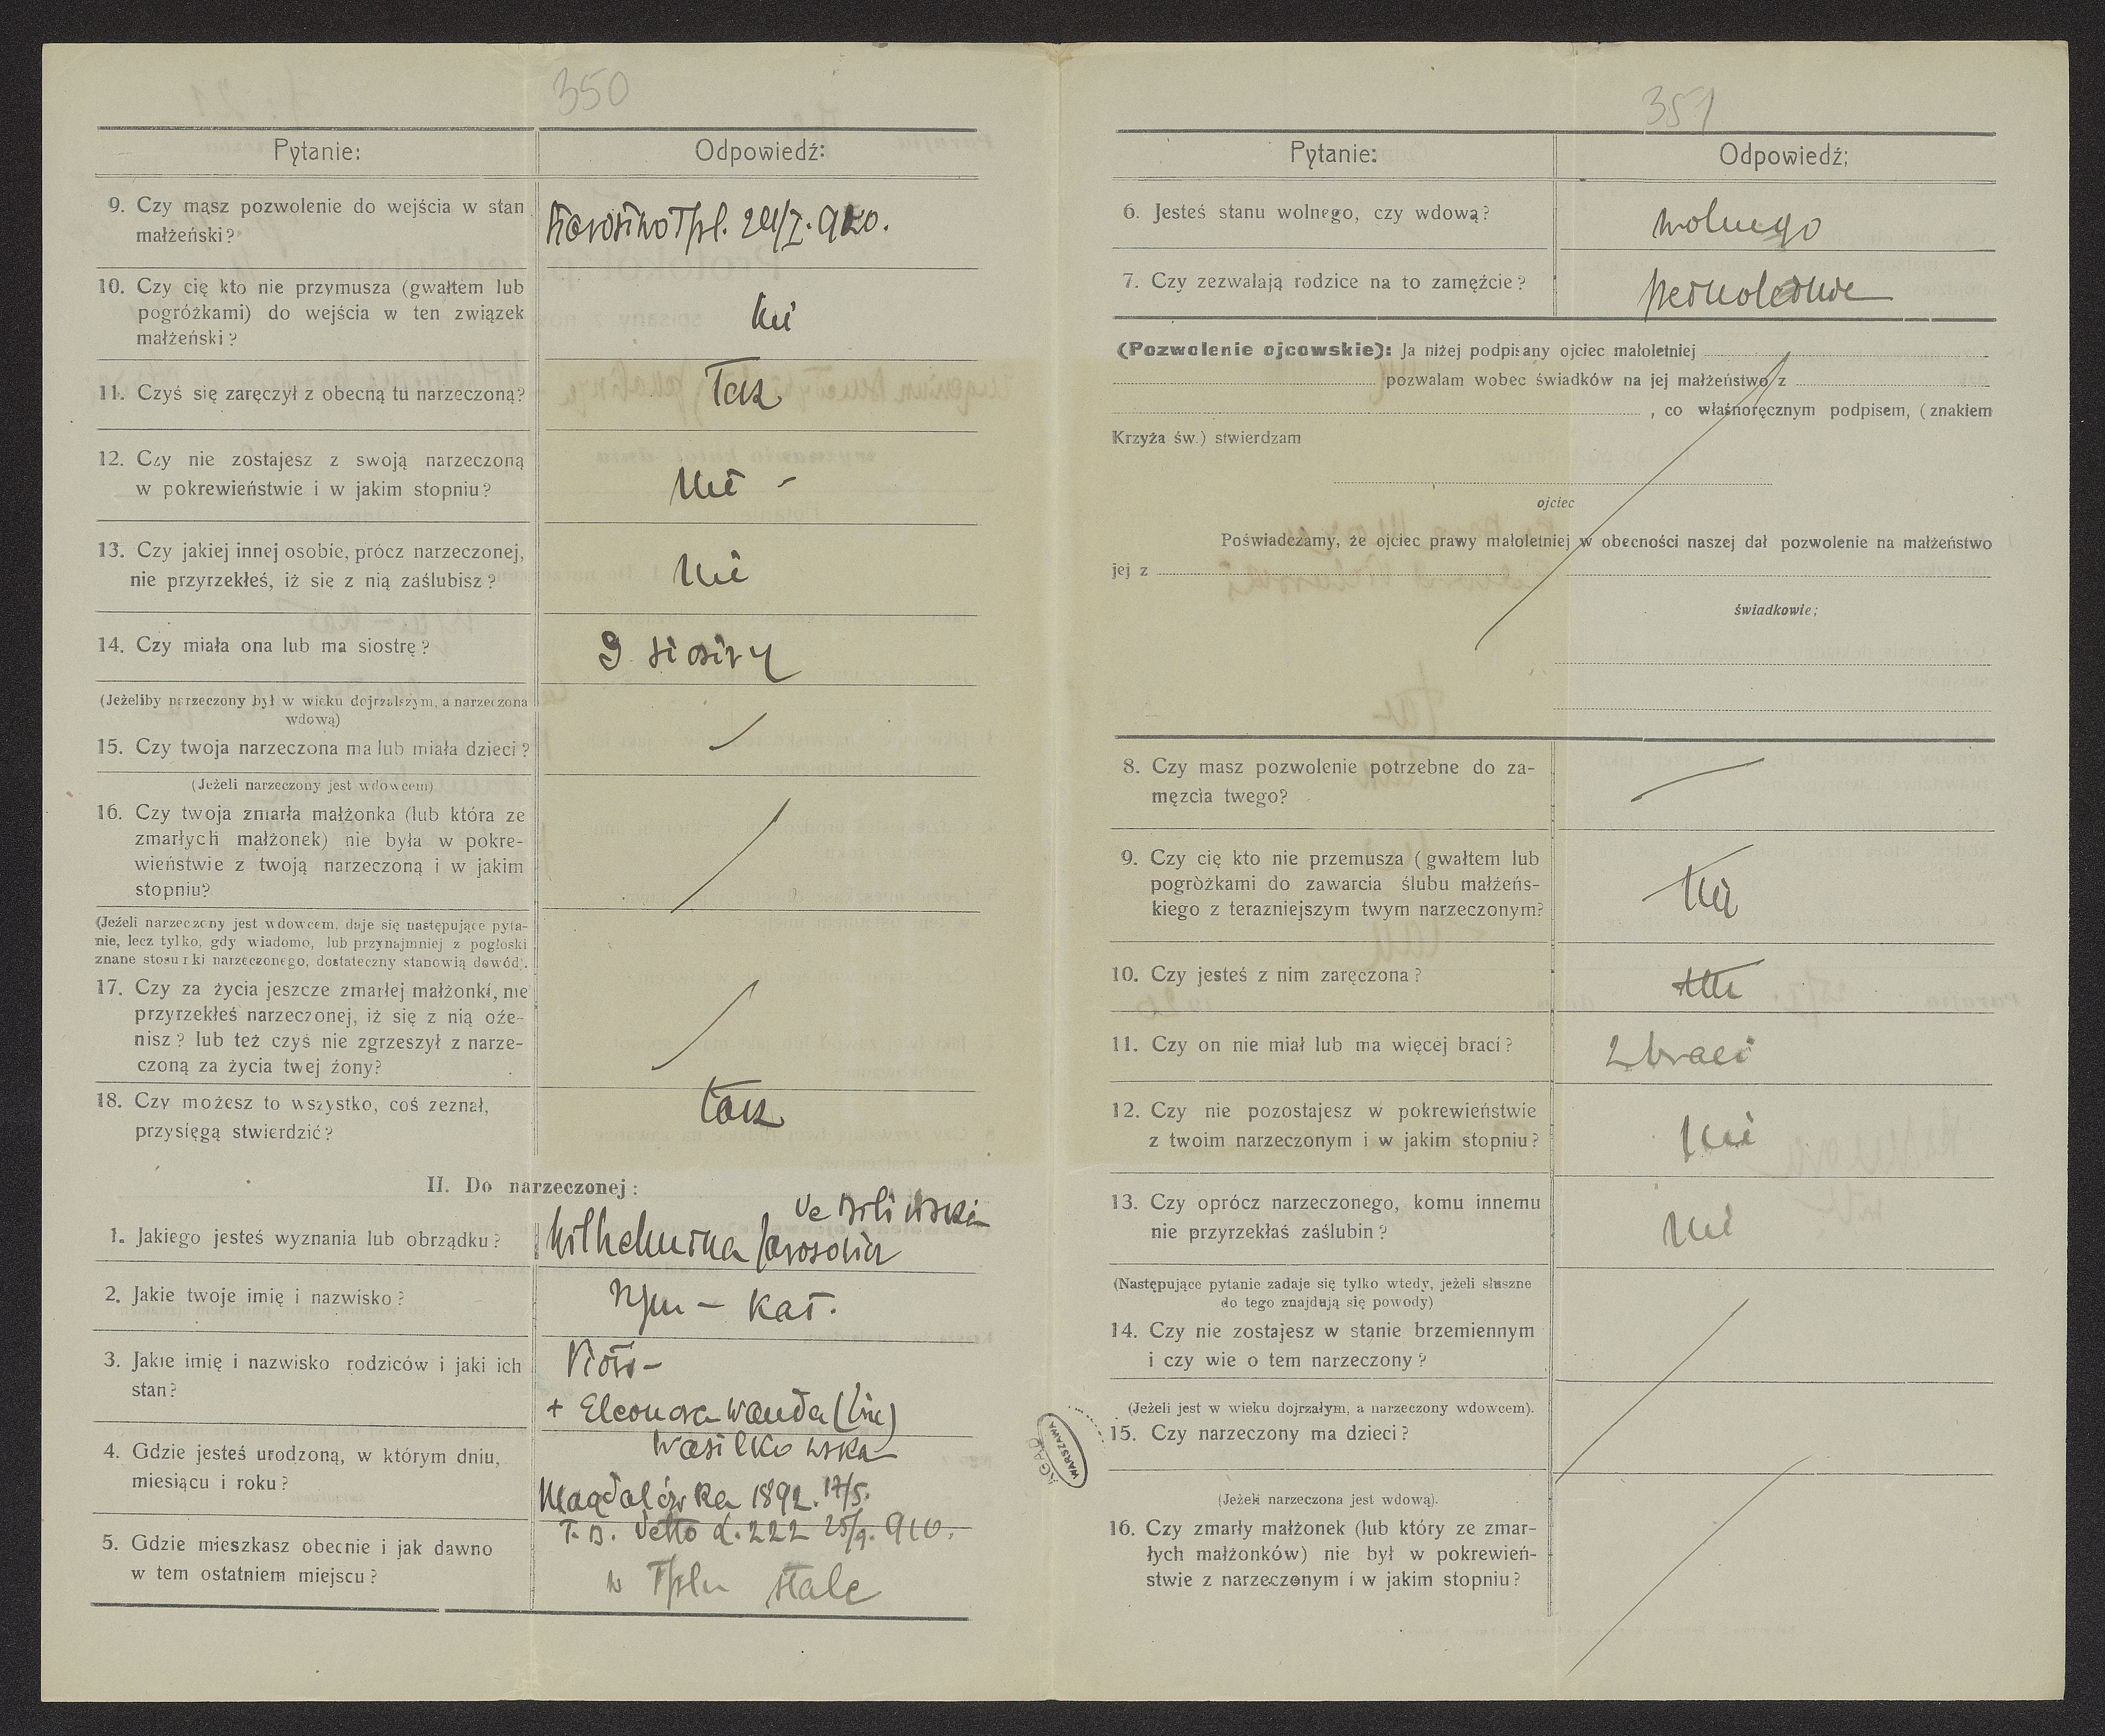 350
Pytanie:
Odpowiedź:
9. Czy masz pozwolenie do wejścia w stan
małżeński?
Starostwo Tpl.
10. Czy cię kto nie przymusza (gwałtem lub
pogróżkami) do wejścia w ten związek
małżeński?
nie
11. Czyś się zaręczył z obecną tu narzeczoną?
Tak
12. Czy nie zostajesz z swoją narzeczoną
w pokrewieństwie i w jakim stopniu?
nie -
13. Czy jakiej innej osobie, prócz narzeczonej,
nie przyrzekłeś, iż sie z nią zaślubisz?
nie
14. Czy miała ona lub ma siostrę?
siostry
(Jeżeliby narzeczony był w wieku dojrzalszym, a narzeczona
wdową)
15. Czy twoja narzeczona ma lub miała dzieci?
(Jeżeli narzeczony jest wdowcem)
16. Czy twoja zmarła małżonka (lub która ze
zmarłych małżonek) nie była w pokre-
wieństwie z twoją narzeczoną i w jakim
stopniu?
(Jeżeli narzeczony jest wdowcem, daje się następujące pyta-
nie, lecz tylko, gdy wiadomo, lub przynajmniej z pogłoski
znane stosunki narzeczonego, dostateczny stanowią dowód).
17. Czy za życia jeszcze zmarłej małżonki, nie
przyrzekłeś narzeczonej, iż się z nią oże-
nisz? lub też czyś nie zgrzeszył z narze-
czoną za życia twej żony?
18. Czy możesz to wszystko, coś zeznał,
przysięgą stwierdzić?
tak
II. Do narzeczonej:
1. Jakiego jesteś wyznania lub obrządku?
Wilhelmina
2. Jakie twoje imię i nazwisko?
rzm - kat.
3. Jakie imię i nazwisko rodziców i jaki ich
stan?
Piotr -
+ Eleonora Wanda
Wasilkowska
4. Gdzie jesteś urodzoną, w którym dniu,
miesiącu i roku?
Magdalówka 1892. 17/5.
d. 222 25/9. 910.
5. Gdzie mieszkasz obecnie i jak dawno
w tem ostatniem miejscu?
w Tplu stale
351
Pytanie:
Odpowiedź;
6. Jesteś stanu wolnego, czy wdową?
wolnego
7. Czy zezwalają rodzice na to zamęźcie?
pełnoletnie
(Pozwolenie ojcowskie): Ja niżej podpisany ojciec małoletniej
pozwalam wobec świadków na jej małżeństwo z
, co własnoręcznym podpisem, (znakiem
Krzyża św.) stwierdzam
ojciec
Poświadczamy, że ojciec prawy małoletniej w obecności naszej dał pozwolenie na małżeństwo
jej z
świadkowie;
8. Czy masz pozwolenie potrzebne do za-
męzcia twego?
9. Czy cię kto nie przemusza (gwałtem lub
pogròżkami do zawarcia ślubu małżeńs-
kiego z terazniejszym twym narzeczonym?
nie
10. Czy jesteś z nim zaręczona?
11. Czy on nie miał lub ma więcej braci?
2 braci
12. Czy nie pozostajesz w pokrewieństwie
z twoim narzeczonym i w jakim stopniu?
nie
13. Czy oprócz narzeczonego, komu innemu
nie przyrzekłaś zaślubin?
nie
(Następujące pytanie zadaje się tylko wtedy, jeżeli słuszne
do tego znajdują się powody)
14. Czy nie zostajesz w stanie brzemiennym
i czy wie o tem narzeczony?
(Jeżeli jest w wieku dojrzałym, a narzeczony wdowcem).
15. Czy narzeczony ma dzieci?
(Jeżeli narzeczona jest wdową).
16. Czy zmarły małżonek (lub który ze zmar-
łych małżonków) nie był w pokrewień-
stwie z narzeczonym i w jakim stopniu?
AGAD
WARSZAWA